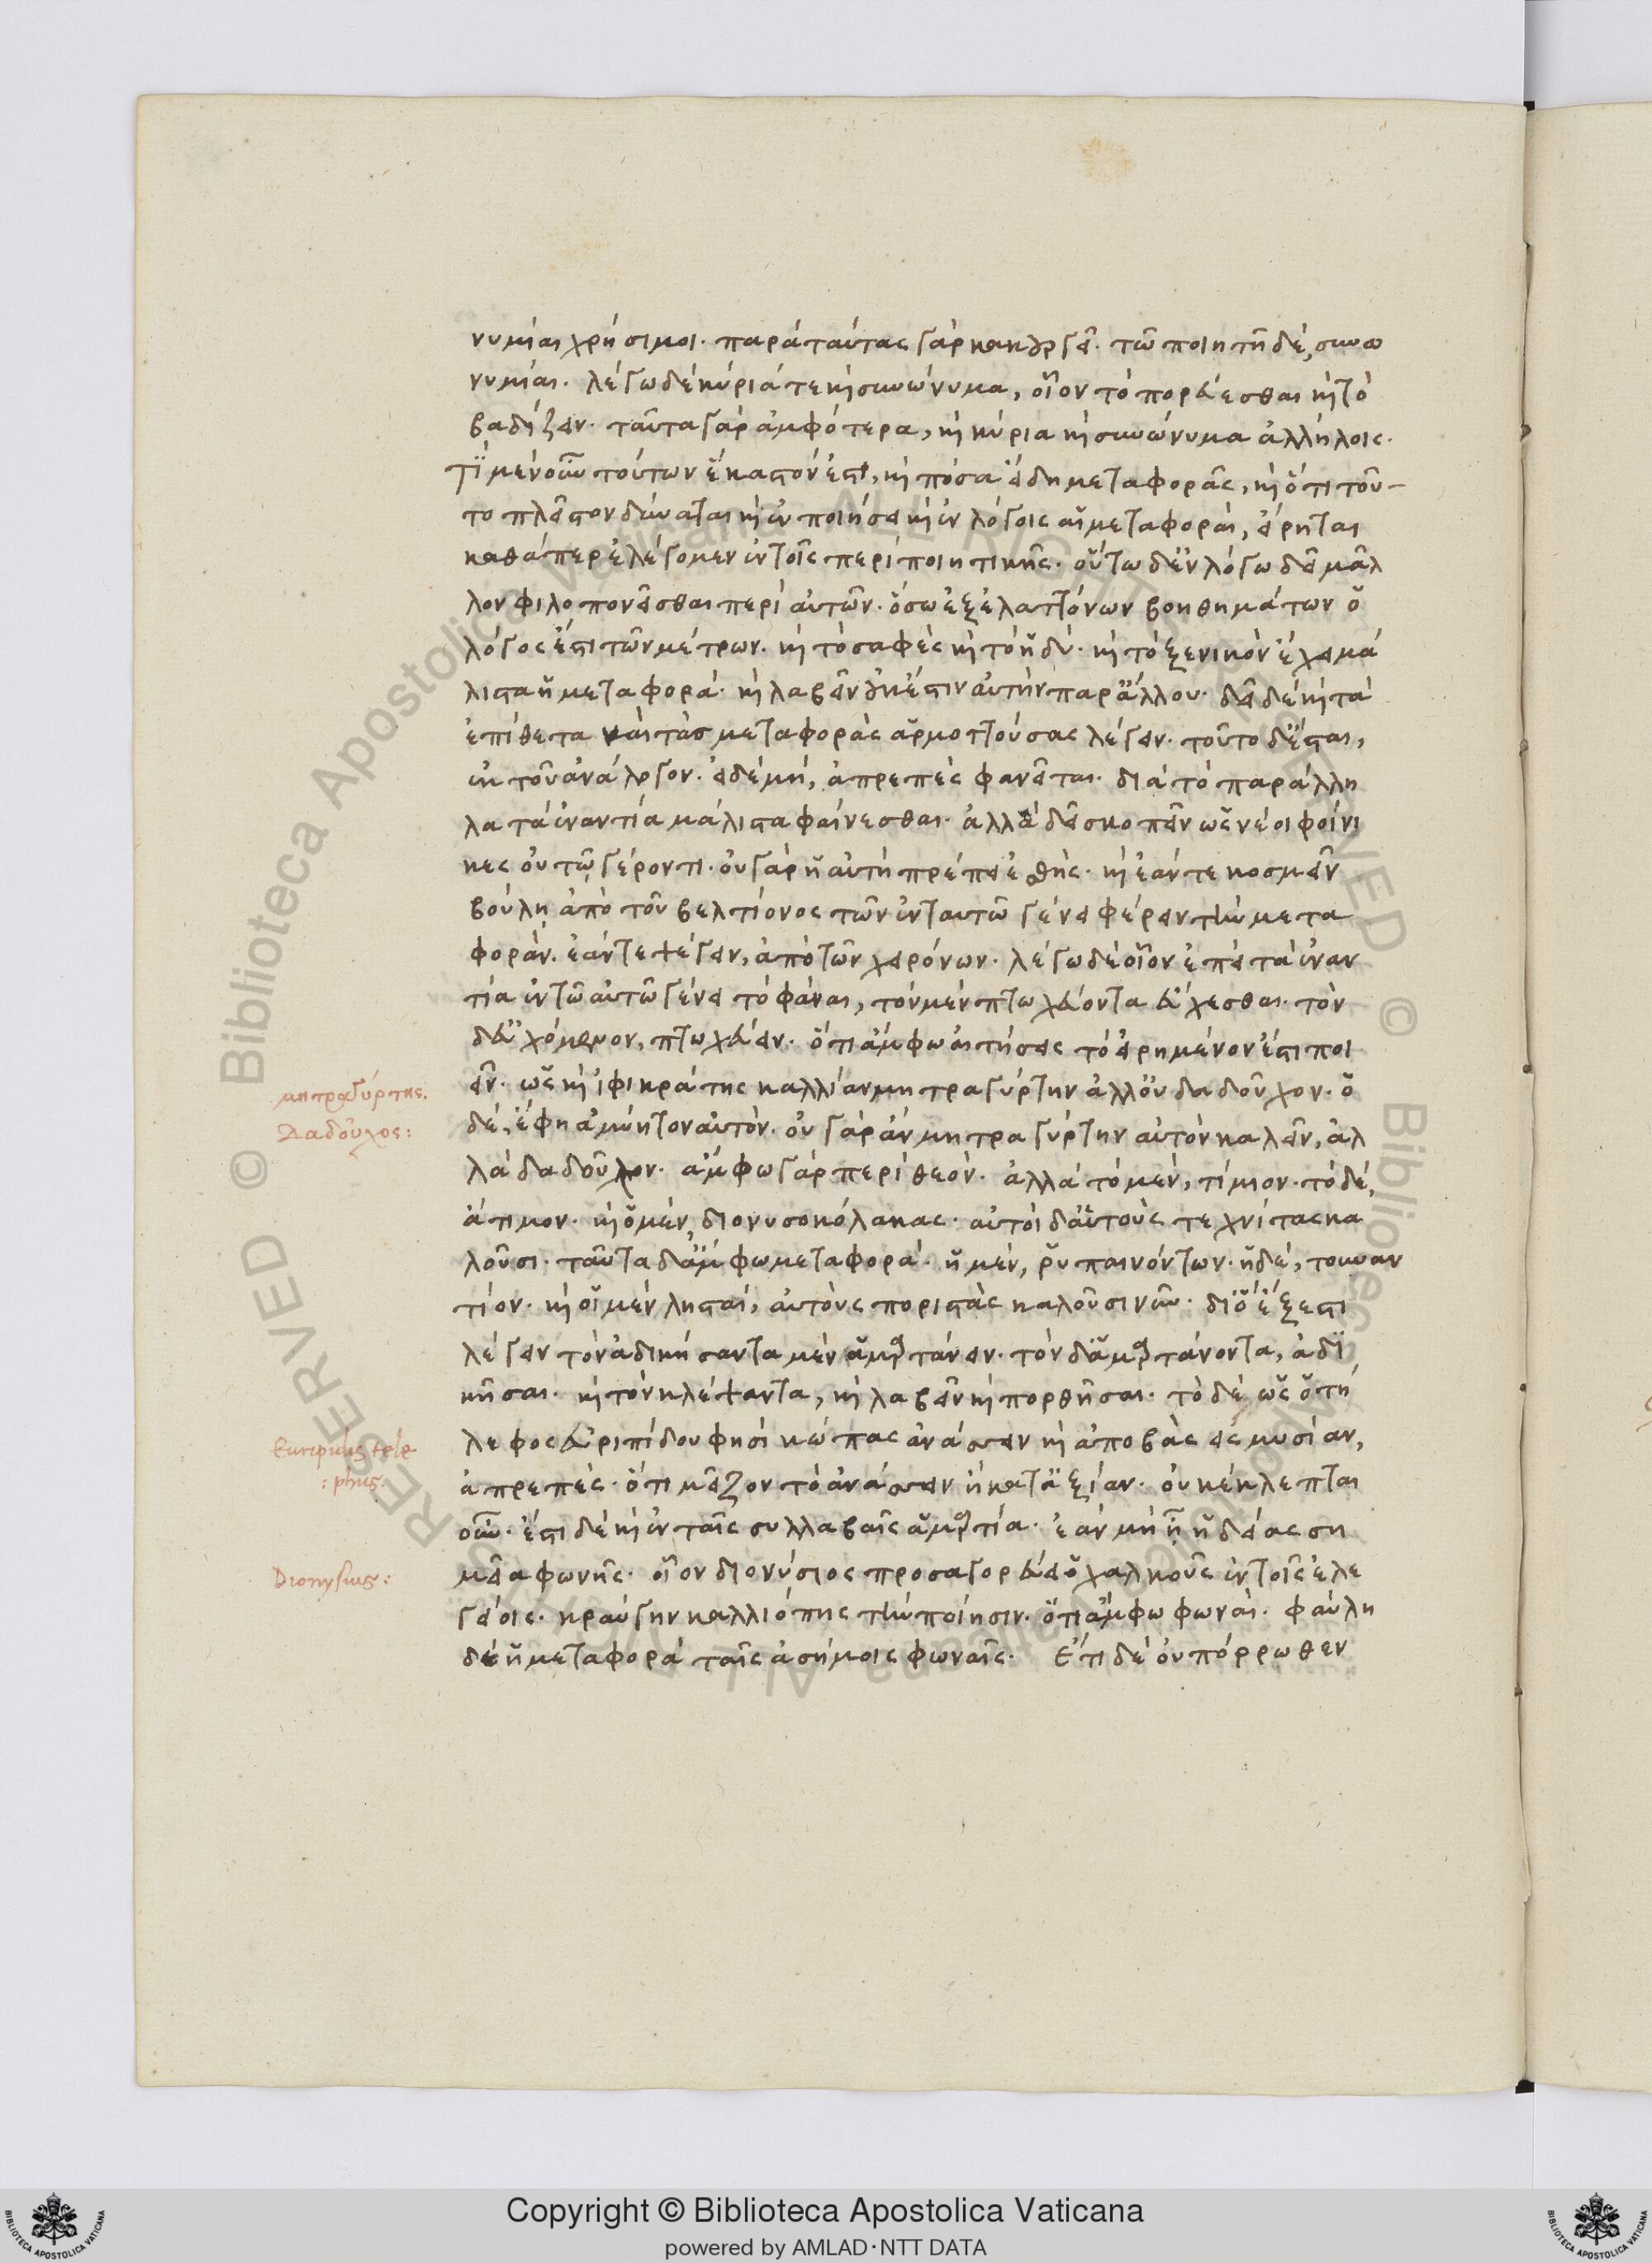 νυμίαι χρήσιμοι. παρὰ ταύτας γὰρ κακουργεῖ. τῶ ποιητῆ δέ, συνω
νυμίαι. λέγω δὲ κύριά τε καὶ συνώνυμα, οἷον τὸ πορεύεσθαι καὶ τὸ
βαδίζειν. ταῦτα γὰρ ἀμφότερα, καὶ κύρια καὶ συνώνυμα ἀλλήλοις.
Τί μὲν οὖν τούτων ἕκαστόν ἐστι, καὶ πόσα εἴδη μεταφορᾶς, καὶ ὅτι τοῦ-
το πλεῖστον δύναται καὶ ἐν ποιήσει καὶ ἐν λόγοις αἱ μεταφοραὶ, εἴρηται
καθάπερ ἐλέγομεν ἐν τοῖς περὶ ποιητικῆς. οὕτω δ' ἐν λόγω δεῖ μᾶλ
λον φιλοπονεῖσθαι περὶ αὐτῶν. ὅσω ἐξ ἐλαττόνων βοηθημάτων ὁ
λόγος ἐστὶ τῶν μέτρων. καὶ τὸ σαφὲς καὶ τὸ ἡδὺ. καὶ τὸ ξενικὸν ἔχει μά
λιστα ἡ μεταφορά. καὶ λαβεῖν οὐκ ἔστιν αὐτὴν παρ' ἄλλου. δεῖ δὲ καὶ τὰ
ἐπίθετα καὶ τὰς μεταφορὰς ἁρμοττούσας λέγειν. τοῦτο δ' ἔσται,
ἐκ τοῦ ἀνάλογον. εἰ δὲ μή, ἀπρεπὲς φανεῖται. διὰ τὸ παράλλη
λα τὰ ἐναντία μάλιστα φαίνεσθαι. ἀλλὰ δεῖ σκοπεῖν ὡς νέοι φοίνι
κες οὐ τῶ γέροντι. οὐ γὰρ ἡ αὐτὴ πρέπει ἐσθής. καὶ ἐάν τε κοσμεῖν
βούλη ἀπὸ τοῦ βελτίονος τῶν ἐν ταυτῶ γένει φέρειν τὴν μετα
φοράν. ἐάν τε ψέγειν, ἀπὸ τῶν χειρόνων. λέγω δὲ οἷον ἐπεὶ τὰ ἐναν
τία ἐν τῶ αὐτῶ γένει τὸ φάναι, τὸν μὲν πτωχεύοντα εὔχεσθαι. τὸν
δ' εὐχόμενον, πτωχεύειν. ὅτι ἄμφω αἰτήσεις τὸ εἰρημένον ἐστὶ ποι
εῖν. ὡς καὶ ἰφικράτης καλλίαν μητραγύρτην ἀλλ' οὐ δαδοῦχον. ὁ
δέ, ἔφη ἀμύητον αὐτόν. οὐ γὰρ ἂν μητραγύρτην αὐτὸν καλεῖν, ἀλ
λὰ δαδοῦχον. ἄμφω γὰρ περὶ θεόν. ἀλλὰ τὸ μὲν, τίμιον. τὸ δέ,
ἄτιμον. καὶ ὁ μέν, διονυσοκόλακας. αὐτοὶ δ' αὑτοὺς τεχνίτας κα
λοῦσι. ταῦτα δ' ἄμφω μεταφορά. ἡ μέν, ῥυπαινόντων. ἡ δέ, τουναν
τίον. καὶ οἱ μὲν λησταί, αὐτοὺς ποριστὰς καλοῦσι νῦν. διὸ ἔξεστι
λέγειν τὸν ἀδικήσαντα μὲν ἁμαρτάνειν. τὸν δ' ἁμαρτάνοντα, ἀδι
κῆσαι. καὶ τὸν κλέψαντα, καὶ λαβεῖν καὶ πορθῆσαι. τὸ δὲ ὡς ὁ τή
λεφος εὐριπίδου φησὶ κώπας ἀνάσσειν καὶ ἀποβὰς εἰς μυσίαν,
ἀπρεπές. ὅτι μεῖζον τὸ ἀνάσσειν ἢ κατ' ἀξίαν. οὐ κέκλεπται
οὖν. ἔστι δὲ καὶ ἐν ταῖς συλλαβαῖς ἁμαρτία. ἐὰν μὴ ἦ ἡδείας ση
μεῖα φωνῆς. οἷον διονύσιος προσαγορεύει ὁ χαλκοῦς ἐν τοῖς ἐλε
γείοις. κραυγὴν καλλιόπης τὴν ποίησιν. ὅτι ἄμφω φωναί. φαύλη
δὲ ἡ μεταφορὰ ταῖς ἀσήμοις φωναῖς. Ἔτι δὲ οὐ πόρρωθεν
μητραγύρτης.
Δαδοῦχος:
Euripidis tele
:phus.
Dionysius:
© Biblioteca Apostolica Vaticana ALL RIGHTS RESERVED
Copyright © Biblioteca Apostolica Vaticana
powered by AMLAD·NTT DATA
BIBLIOTECA APOSTOLICA VATICANA
BIBLIOTECA APOSTOLICA VATICANA